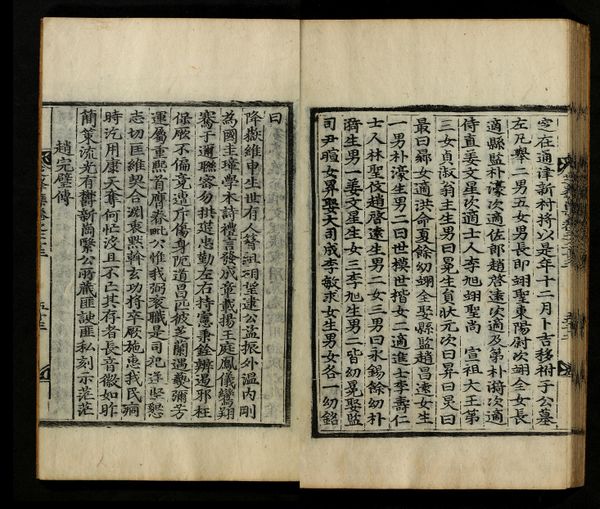 窆在通津新村將以是年十二月卜吉移祔于公墓
左凡擧二男五女男長卽翊聖東陽尉次翊全女長
適縣監朴濠次適佐郞趙啓遠次適及第朴漪次適
侍直姜文星次適士人李旭翊聖尚 宣祖大王第
三女貞淑翁主生男曰冕生員狀元次曰昇曰炅曰
最曰女適洪命夏餘幼翊全娶縣監趙昌遠女生
一男朴濠生男二曰世模世楷女二適進士李壽仁
士人林聖伋趙啓遠生男二女三男曰永錫餘幼朴
漪生男一姜文星生女三李旭生男二皆幼冕娶監
司尹暄女昇娶大司成李敏求女生男女各一幼銘
曰
降嶽維申生世有人簪祖翊聖逮公益振外溫内剛
為國圭璋學本詩禮言發成章載揚王庭鳳儀鸞翔
騫于邇聯密勿拱廷忠勤左右持憲秉銓辨遏邪枉
保厥不偏竟遭斥傷身阨道昌匹彼芝蘭遏藝彌芳
運屬重熙首膺眷毗公惟我弼袞職是司逑堅懇
志切匡維契合淵衷熙幹玄功將卒厥施惠我民痌
時汔用康天奪何忙沒且不亡其存者長音徽如昨
簡策流光有欝新岡繄公所藏匪諛匪私刻示茫茫
趙完璧傳